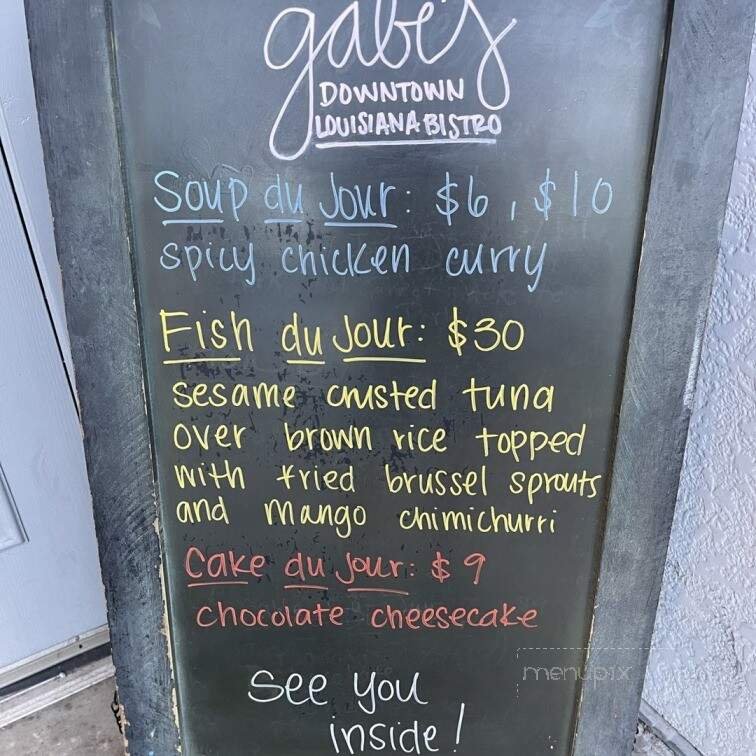 gabe's
DOWNTOWN
LOUISIANA BISTRO
Soup du Jour: $6, $10
spicy chicken curry
Fish du Jour: $30
sesame crusted tuna
over brown rice topped
with fried brussel sprouts
and mango chimichurri
Cake du Jour: $9
chocolate cheesecake
See you
inside!
menupix